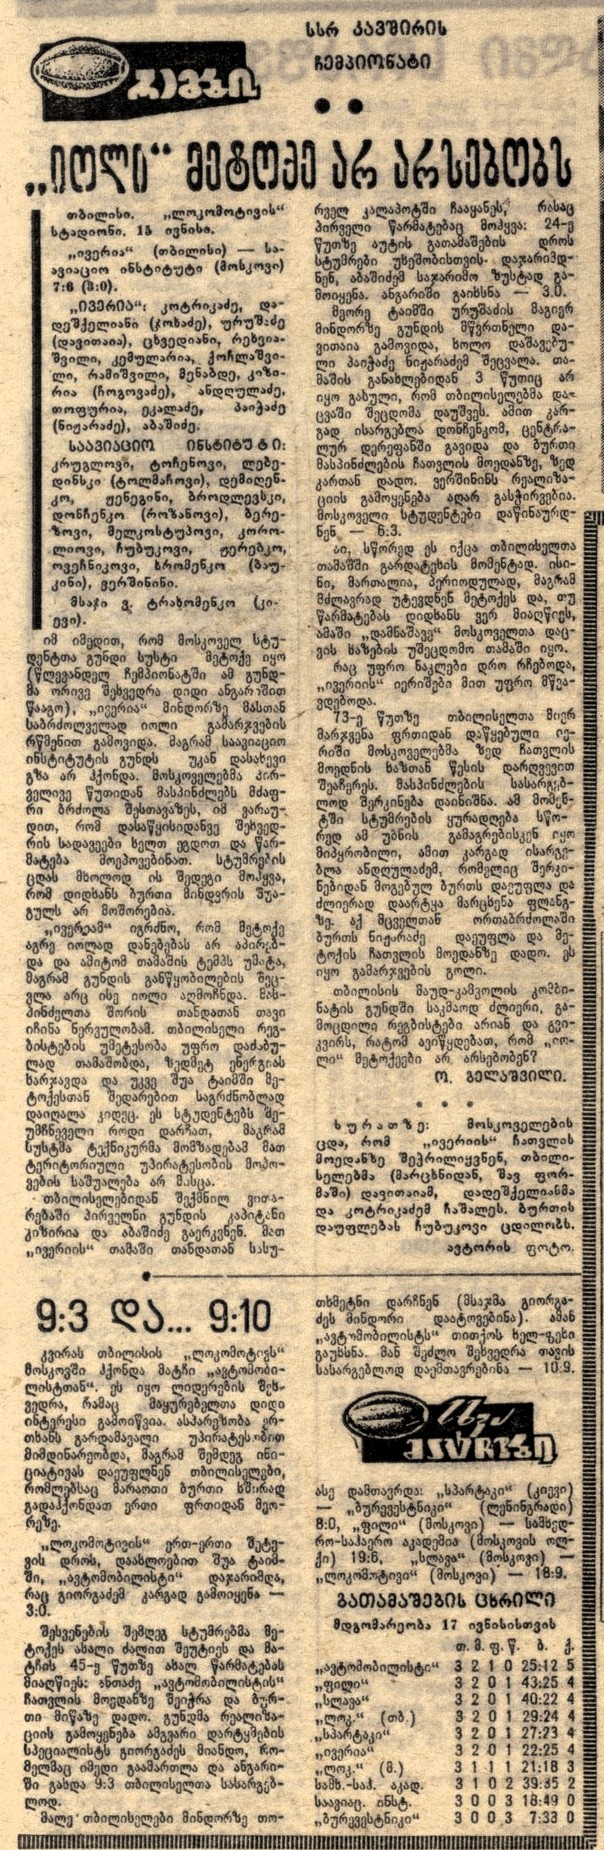 რაგბი
სსრ კავშირის
ჩემპიონატი
„იოლი“ მეტოქე არ არსებობს
თბილისი. „ლოკომოტივის“
სტადიონი. 15 ივნისი.
„ივერია“ (თბილისი) — სა-
ავიაციო ინსტიტუტი (მოსკოვი)
7:6 (3:0).
„ივერია“: კოტრიკაძე, და-
დეშქელიანი (ჯოხაძე), ურუშაძე
(დავითაია), ცხვედიანი, რეხვია-
შვილი, კემულარია, ქოჩლაშვი-
ლი, რამიშვილი, მენაბდე, კიზი-
რია (ჩოგოვაძე), ანდღულაძე,
თოფურია, ეკალაძე, პაიჭაძე
(ნიჟარაძე), აბაშიძე.
საავიაციო ინსტიტუტი:
კრუგლოვი, ტოჩენოვი, ლებე-
დინსკი (ტოლმაჩოვი), დემიდენ-
კო, ჟენეგინი, ბროდლევსკი,
დონჩენკო (როზანოვი), ბერე-
ზოვი, მელკოსტუპოვი, კორო-
ლიოვი, ჩუბუკოვი, ჟერებკო,
ოვეჩნიკოვი, ხრომენკო (ბაუ-
კინი), ვერშინინი.
მსაჯი ვ. ტრახომენკო (კი-
ევი).
იმ იმედით, რომ მოსკოველ სტუ-
დენტთა გუნდი სუსტი მეტოქე იყო
(წლევანდელ ჩემპიონატში ამ გუნდ-
მა ორივე შეხვედრა დიდი ანგარიშით
წააგო), „ივერია“ მინდორზე მასთან
საბრძოლველად იოლი გამარჯვების
რწმენით გამოვიდა. მაგრამ საავიაციო
ინსტიტუტის გუნდს უკან დასახევი
გზა არ ჰქონდა. მოსკოველებმა პირ-
ველივე წუთიდან მასპინძლებს მძაფ-
რი ბრძოლა შესთავაზეს, იმ ვარაუ-
დით, რომ დასაწყისიდანვე შეხვედ-
რის სადავეები ხელთ ეგდოთ და წარ-
მატება მოეპოვებინათ. სტუმრების
ცდას მხოლოდ ის შედეგი მოჰყვა,
რომ დიდხანს ბურთი მინდვრის შუა-
გულს არ მოშორებია.
„ივერიამ“ იგრძნო, რომ მეტოქე
აგრე იოლად დანებებას არ აპირებ-
და და ამიტომ თამაშის ტემპს უმატა,
მაგრამ გუნდის განწყობილების შეც-
ვლა არც ისე იოლი აღმოჩნდა. მას-
პინძელთა შორის თანდათან თავი
იჩინა ნერვულობამ. თბილისელი რეგ-
ბისტების უმეტესობა უფრო დაძაბუ-
ლად თამაშობდა, ზედმეტ ენერგიას
ხარჯავდა და უკვე შუა ტაიმში მე-
ტოქესთან შედარებით საგრძნობლად
დაიღალა კიდეც. ეს სტუდენტებს შე-
უმჩნეველი როდი დარჩათ, მაგრამ
სუსტმა ტექნიკურმა მომზადებამ მათ
ტერიტორიული უპირატესობის მოპო-
ვების საშუალება არ მისცა.
თბილისელებიდან შექმნილ ვითა-
რებაში პირველნი გუნდის კაპიტანი
კიზირია და აბაშიძე გაერკვნენ. მათ
„ივერიის“ თამაში თანდათან სასუ-
რველ კალაპოტში ჩააყანეს, რასაც
პირველი წარმატებაც მოჰყვა: 24-ე
წუთზე აუტის გათამაშების დროს
სტუმრები უხეშობისთვის დაჯარიმდ-
ნენ, აბაშიძემ საჯარიმო ზუსტად გა-
მოიყენა. ანგარიში გაიხსნა — 3:0.
მეორე ტაიმში ურუშაძის მაგიერ
მინდორზე გუნდის მწვრთნელი და-
ვითაია გამოვიდა, ხოლო დაშავებუ-
ლი პაიჭაძე ნიჟარაძემ შეცვალა. თა-
მაშის განახლებიდან 3 წუთიც არ
იყო გასული, რომ თბილისელებმა და-
ცვაში შეცდომა დაუშვეს. ამით კარ-
გად ისარგებლა დონჩენკომ, ცენტრა-
ლურ დერეფანში გავიდა და ბურთი
მასპინძლების ჩათვლის მოედანზე, ზედ
კართან დადო. ვერშინინს რეალიზა-
ციის გამოყენება აღარ გასჭირვებია.
მოსკოველი სტუდენტები დაწინაურდ-
ნენ — 6:3.
აი, სწორედ ეს იქცა თბილისელთა
თამაშში გარდატეხის მომენტად. ისი-
ნი, მართალია, პერიოდულად, მაგრამ
მძლავრად უტევდნენ მეტოქეს და, თუ
წარმატებას დიდხანს ვერ მიაღწიეს,
ამაში „დამნაშავე“ მოსკოველთა დაც-
ვის ხაზების უშეცდომო თამაში იყო.
რაც უფრო ნაკლები დრო რჩებოდა,
„ივერიის“ იერიშები მით უფრო მწვა-
ვდებოდა.
73-ე წუთზე თბილისელთა მიერ
მარჯვენა ფრთიდან დაწყებული იე-
რიში მოსკოველებმა ზედ ჩათვლის
მოედნის ხაზთან წესის დარღვევით
შეაჩერეს. მასპინძლების სასარგებ-
ლოდ შერკინება დაინიშნა. ამ მომენ-
ტში სტუმრების ყურადღება სწო-
რედ ამ უბნის გამაგრებისკენ იყო
მიპყრობილი, ამით კარგად ისარგე-
ბლა ანდღულაძემ, რომელიც შერკი-
ნებიდან მოგებულ ბურთს დაეუფლა და
ძლიერად დაარტყა მარცხენა ფლანგ-
ზე. აქ მცველთან ორთაბრძოლაში
ბურთს ნიჟარაძე დაეუფლა და მე-
ტოქის ჩათვლის მოედანზე დადო. ეს
იყო გამარჯვების გოლი.
თბილისის მაუდ-კამვოლის კომბი-
ნატის გუნდში საკმაოდ ძლიერი, გა-
მოცდილი რეგბისტები არიან და გვი-
კვირს, რატომ ავიწყდებათ, რომ „იო-
ლი“ მეტოქეები არ არსებობენ?
ო. გელაშვილი.
სურათზე: მოსკოველების
ცდა, რომ „ივერიის“ ჩათვლის
მოედანზე შეჭრილიყვნენ, თბილი-
სელებმა (მარცხნიდან, შავ ფორ-
მაში) დავითაიამ, დადეშქელიანმა
და კოტრიკაძემ ჩაშალეს. ბურთის
დაუფლებას ჩუბუკოვი ცდილობს.
ავტორის ფოტო.
9:3 და... 9:10
კვირას თბილისის „ლოკომოტივს“
მოსკოვში ჰქონდა მატჩი „ავტომობი-
ლისტთან“. ეს იყო ლიდერების შეხ-
ვედრა, რამაც მაყურებელთა დიდი
ინტერესი გამოიწვია. ასპარეზობა ერ-
თხანს გარდამავალი უპირატესობით
მიმდინარეობდა, მაგრამ შემდეგ ინი-
ციატივას დაეუფლნენ თბილისელები,
რომლებსაც მარაოთი ბურთი ხშირად
გადაჰქონდათ ერთი ფრთიდან მეო-
რეზე.
„ლოკომოტივის“ ერთ-ერთი შეტე-
ვის დროს, დაახლოებით შუა ტაიმ-
ში, „ავტომობილისტი“ დაჯარიმდა,
რაც გიორგაძემ კარგად გამოიყენა —
3:0.
შესვენების შემდეგ სტუმრებმა მე-
ტოქეს ახალი ძალით შეუტიეს და მა-
ტჩის 45-ე წუთზე ახალ წარმატებას
მიაღწიეს: ანთაძე „ავტომობილისტის“
ჩათვლის მოედანზე შეიჭრა და ბურ-
თი მიწაზე დადო. გუნდმა რეალიზა-
ციის გამოყენება ამგვარი დარტყმების
სპეციალისტს გიორგაძეს მიანდო, რო-
მელმაც იმედი გაამართლა და ანგარი-
ში გახდა 9:3 თბილისელთა სასარგებ-
ლოდ.
მალე თბილისელები მინდორზე თო-
თხმეტნი დარჩნენ (მსაჯმა გიორგა-
ძეს მინდორი დაატოვებინა). ამან
„ავტომობილისტს“ თითქოს ხელ-ფეხი
გაუხსნა. მან შეძლო შეხვედრა თავის
სასარგებლოდ დაემთავრებინა — 10:9.
სხვა
მატჩები
ასე დამთავრდა: „სპარტაკი“ (კიევი)
— „ბურევესტნიკი“ (ლენინგრადი)
8:0, „ფილი“ (მოსკოვი) — სამხედ-
რო-საჰაერო აკადემია (მოსკოვის ოლ-
ქი) 19:6, „სლავა“ (მოსკოვი) —
„ლოკომოტივი“ (მოსკოვი) — 18:9.
გათამაშების ცხრილი
მდგომარეობა 17 ივნისისთვის
თ. მ. ფ. წ. ბ. ქ.
„ავტომობილისტი“ 3 2 1 0 25:12 5
„ფილი“ 3 2 0 1 43:25 4
„სლავა“ 3 2 0 1 40:22 4
„ლოკ.“ (თბ.) 3 2 0 1 29:24 4
„სპარტაკი“ 3 2 0 1 27:23 4
„ივერია“ 3 2 0 1 22:25 4
„ლოკ.“ (მ.) 3 1 1 1 21:18 3
სამხ.-საჰ. აკად. 3 1 0 2 39:35 2
საავიაც. ინსტ. 3 0 0 3 18:49 0
„ბურევესტნიკი“ 3 0 0 3 7:33 0